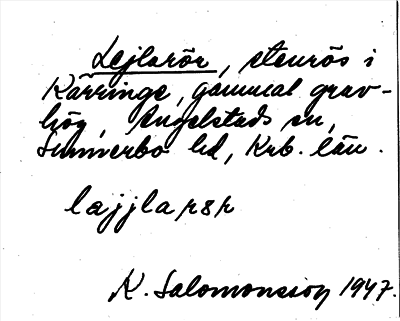 Lejlarör, stenrös i
Kärringe, gammal grav-
hög, Angelstads sn,
Sunnerbo hd, Krb. län.
lajjlarsr
K. Salomonsson 1947.